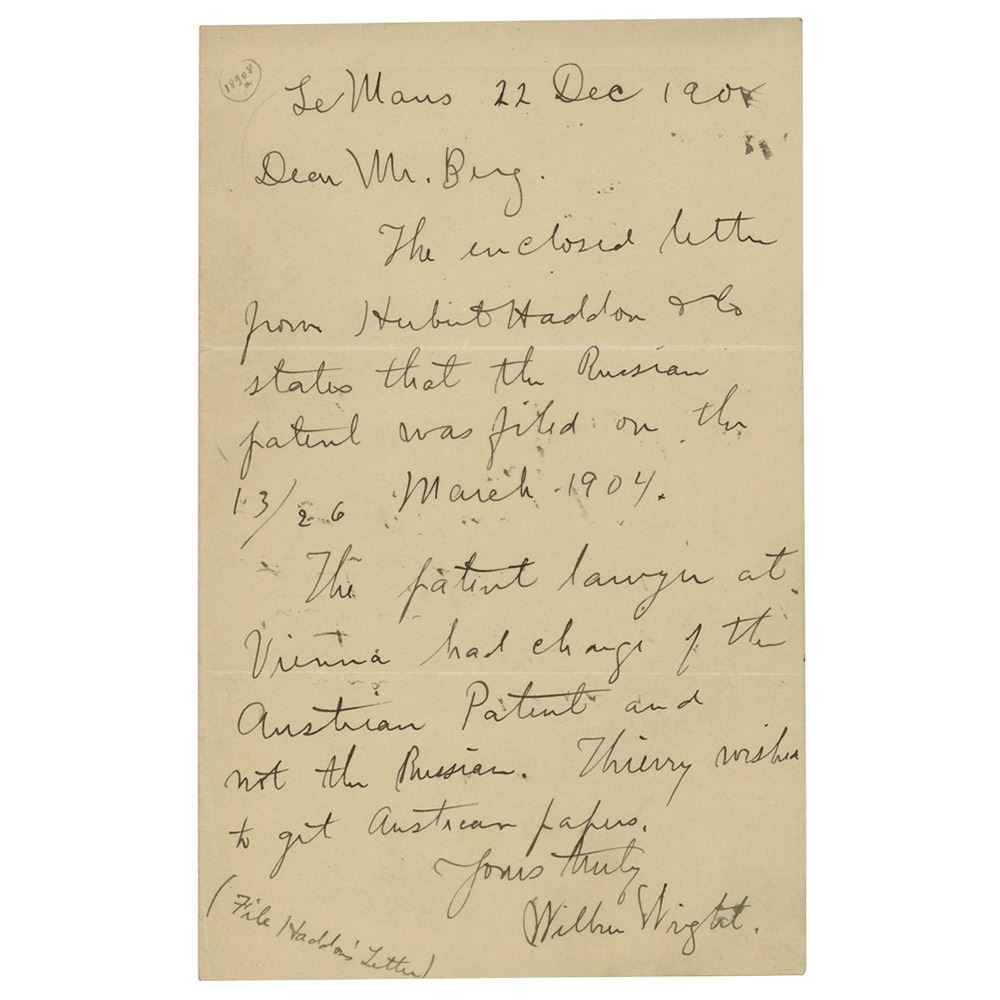 18908
a
Le Mans 22 Dec 1908
Dear Mr. Berg.
The enclosed letter
from Herbert Haddon & Co
states that the Russian
patent was filed on the
13/26 March 1904.
The patent lawyer at
Vienna had charge of the
Austrian Patent and
not the Russian. Thierry wished
to get Austrian papers.
Yours truly
Wilbur Wright.
(File Haddon's Letter)